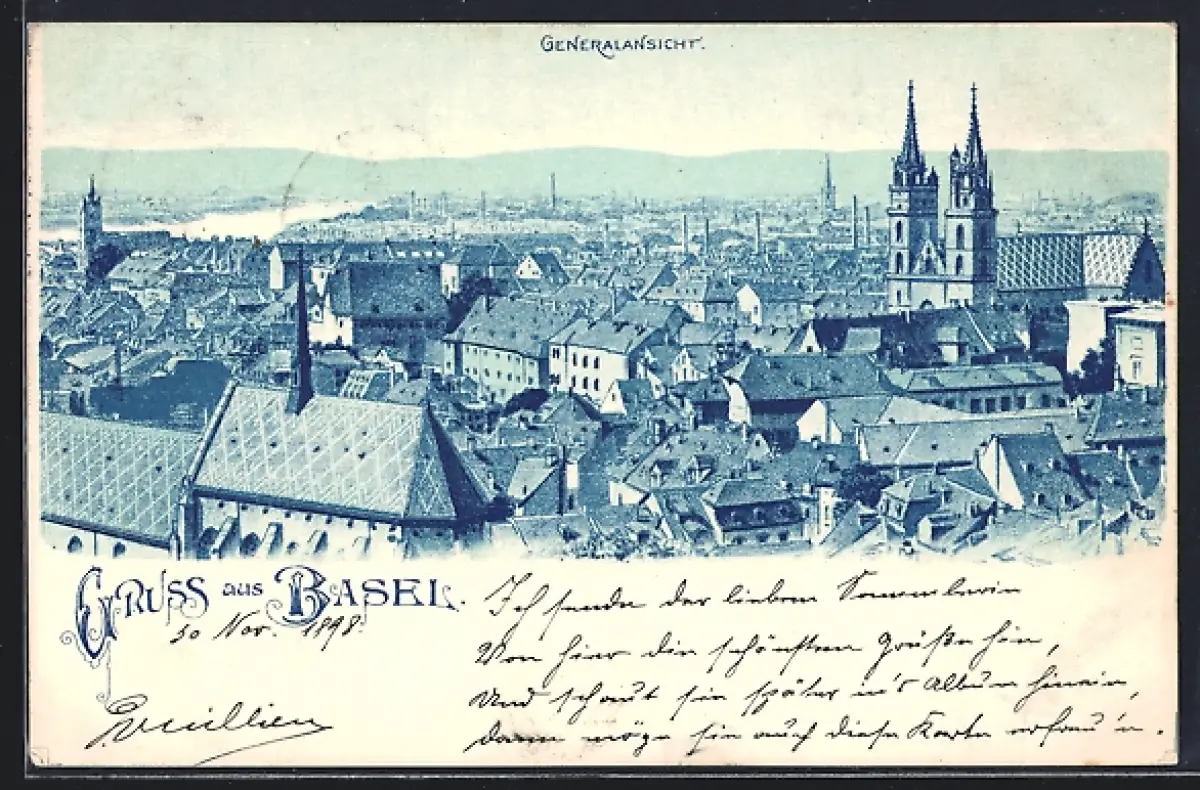 GENERALANSICHT.
GRUSS AUS BASEL.
30 Nov. 1898.
Ich sende der lieben Sammlerin
Von hier die schönsten Grüße hin,
Und schaut sie später in's Album hinein,
dann möge sie auch diese Karte erfreu'n.